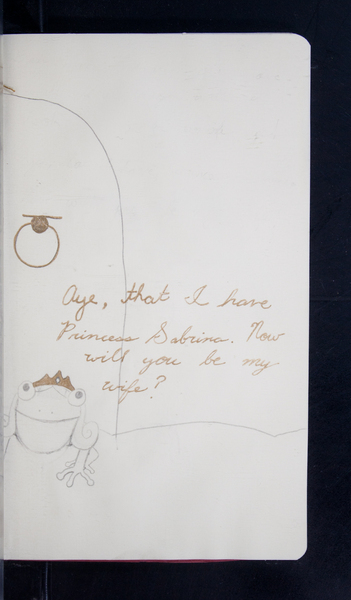 Aye, that I have
Princess Sabrina. Now
will you be my
wife?